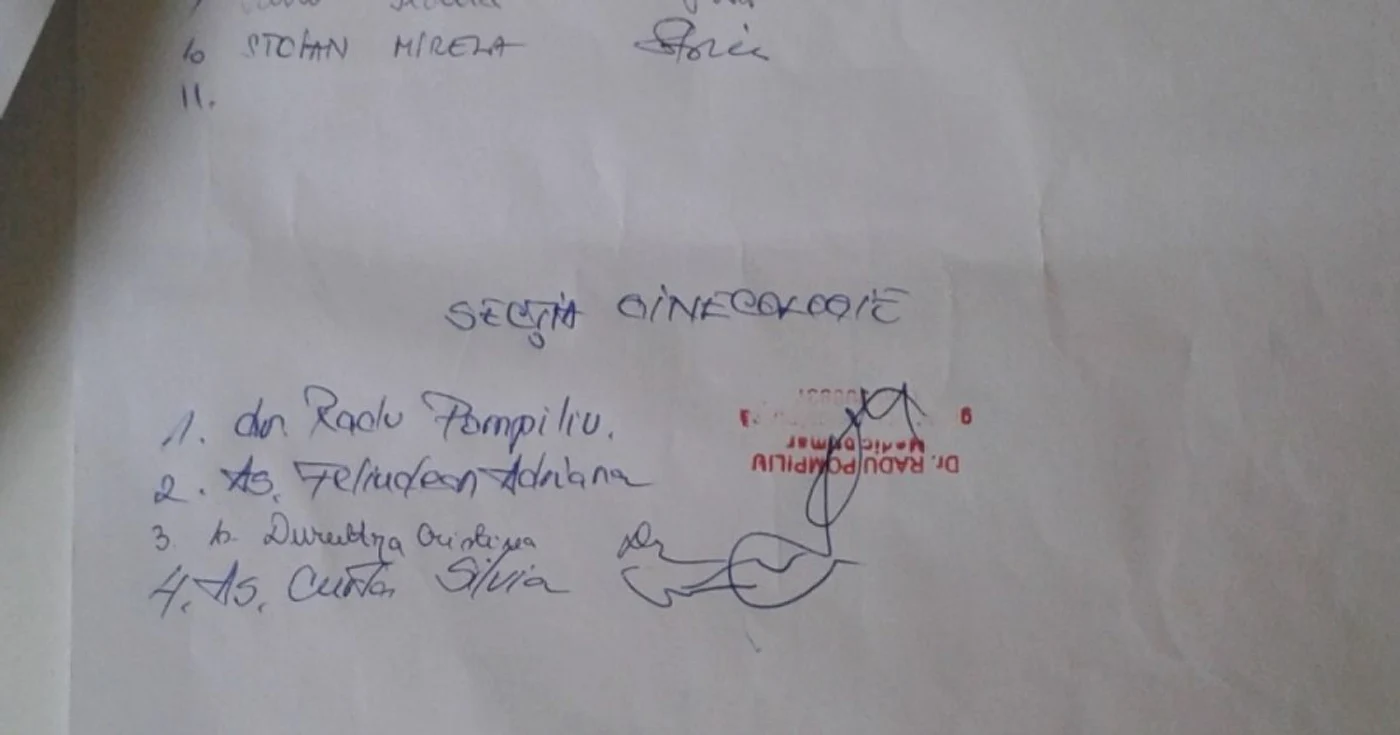 10 STOIAN MIRELA
11.
SECȚIA GINECOLOGIE
1. dr. Radu Pompiliu.
2. As. Feliudean Adriana
3. As. Cristina
4. As. Curta Silvia
Dr. RADU POMPILIU
Medic primar